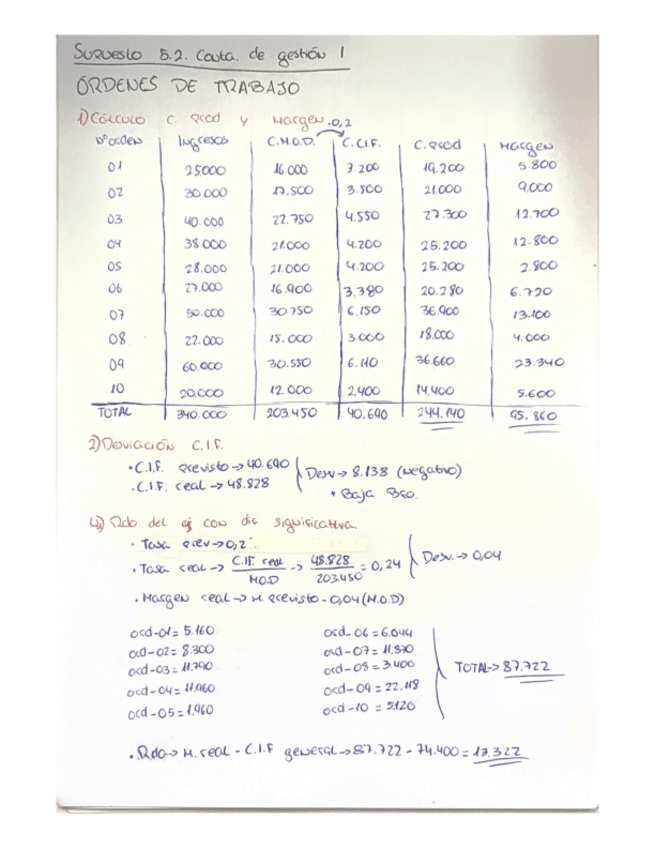 SUPUESTO 5.2. Conta. de gestión I
ÓRDENES DE TRABAJO
1) Cálculo C. Prod y Margen .0,2
Nº orden Ingresos C.M.O.D. C.CIF. C.Prod Margen
01 25000 16.000 3.200 19.200 5.800
02 30.000 17.500 3.500 21.000 9.000
03 40.000 22.750 4.550 27.300 12.700
04 38.000 21.000 4.200 25.200 12.800
05 28.000 21.000 4.200 25.200 2.800
06 27.000 16.900 3.380 20.280 6.720
07 50.000 30.750 6.150 36.900 13.100
08 22.000 15.000 3.000 18.000 4.000
09 60.000 30.550 6.110 36.660 23.340
10 20.000 12.000 2.400 14.400 5.600
TOTAL 340.000 203.450 40.690 244.140 95.860
2) Desviación C.I.F.
• C.I.F. previsto → 40.690
• C.I.F. real → 48.828
Desv → 8.138 (negativo)
• Baja Bfo.
4) Rdo del ej con dif significativa.
• Tasa prev → 0,2
• Tasa real → C.IF. real / M.O.D → 48.828 / 203.450 = 0,24
Desv. → 0,04
• Margen real → M. previsto - 0,04 (M.O.D)
ord-01 = 5.160
ord-02 = 8.300
ord-03 = 11.790
ord-04 = 11.960
ord-05 = 1.960
ord-06 = 6.044
ord-07 = 11.870
ord-08 = 3.400
ord-09 = 22.118
ord-10 = 5.120
TOTAL → 87.722
• Rdo → M. real - C.I.F general → 87.722 - 74.400 = 13.322